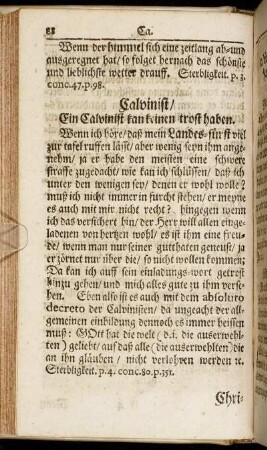 88 Ca.
Wenn der himmel sich eine zeitlang ab- und
ausgeregnet hat/ so folget hernach das schönste
und lieblichste wetter drauff. Sterbligkeit. p. 3.
conc. 47. p. 98.
Calvinist/
Ein Calvinist kan keinen trost haben.
Wenn ich höre/ daß mein Landes-fürst viel
zur tafel ruffen läst/ aber wenig seyn ihm ange-
nehm/ ja er habe den meisten eine schwere
straffe zugedacht/ wie kan ich schlüssen/ daß ich
unter den wenigen sey/ denen er wohl wolle?
muß ich nicht immer in furcht stehen/ er meyne
es auch mit mir nicht recht? hingegen wenn
ich das versichert bin/ der Herr will allen einge-
ladenen von hertzen wohl/ es ist ihm eine freu-
de/ wenn man nur seiner gutthaten geneust/ ja
er zörnet nur über die/ so nicht wollen kommen;
Da kan ich auff sein einladungs-wort getrost
hinzu gehen/ und mich alles gute zu ihm verse-
hen. Eben also ist es auch mit dem absoluto
decreto der Calvinisten/ da ungeacht der all-
gemeinen einbildung dennoch es immer heissen
muß: GOtt hat die welt (d. i. die auserwehl-
ten) geliebt/ auf daß alle (die auserwehlten) die
an ihn gläuben/ nicht verlohren werden ꝛc.
Sterbligkeit. p. 4. conc. 80. p. 351.
Chri-